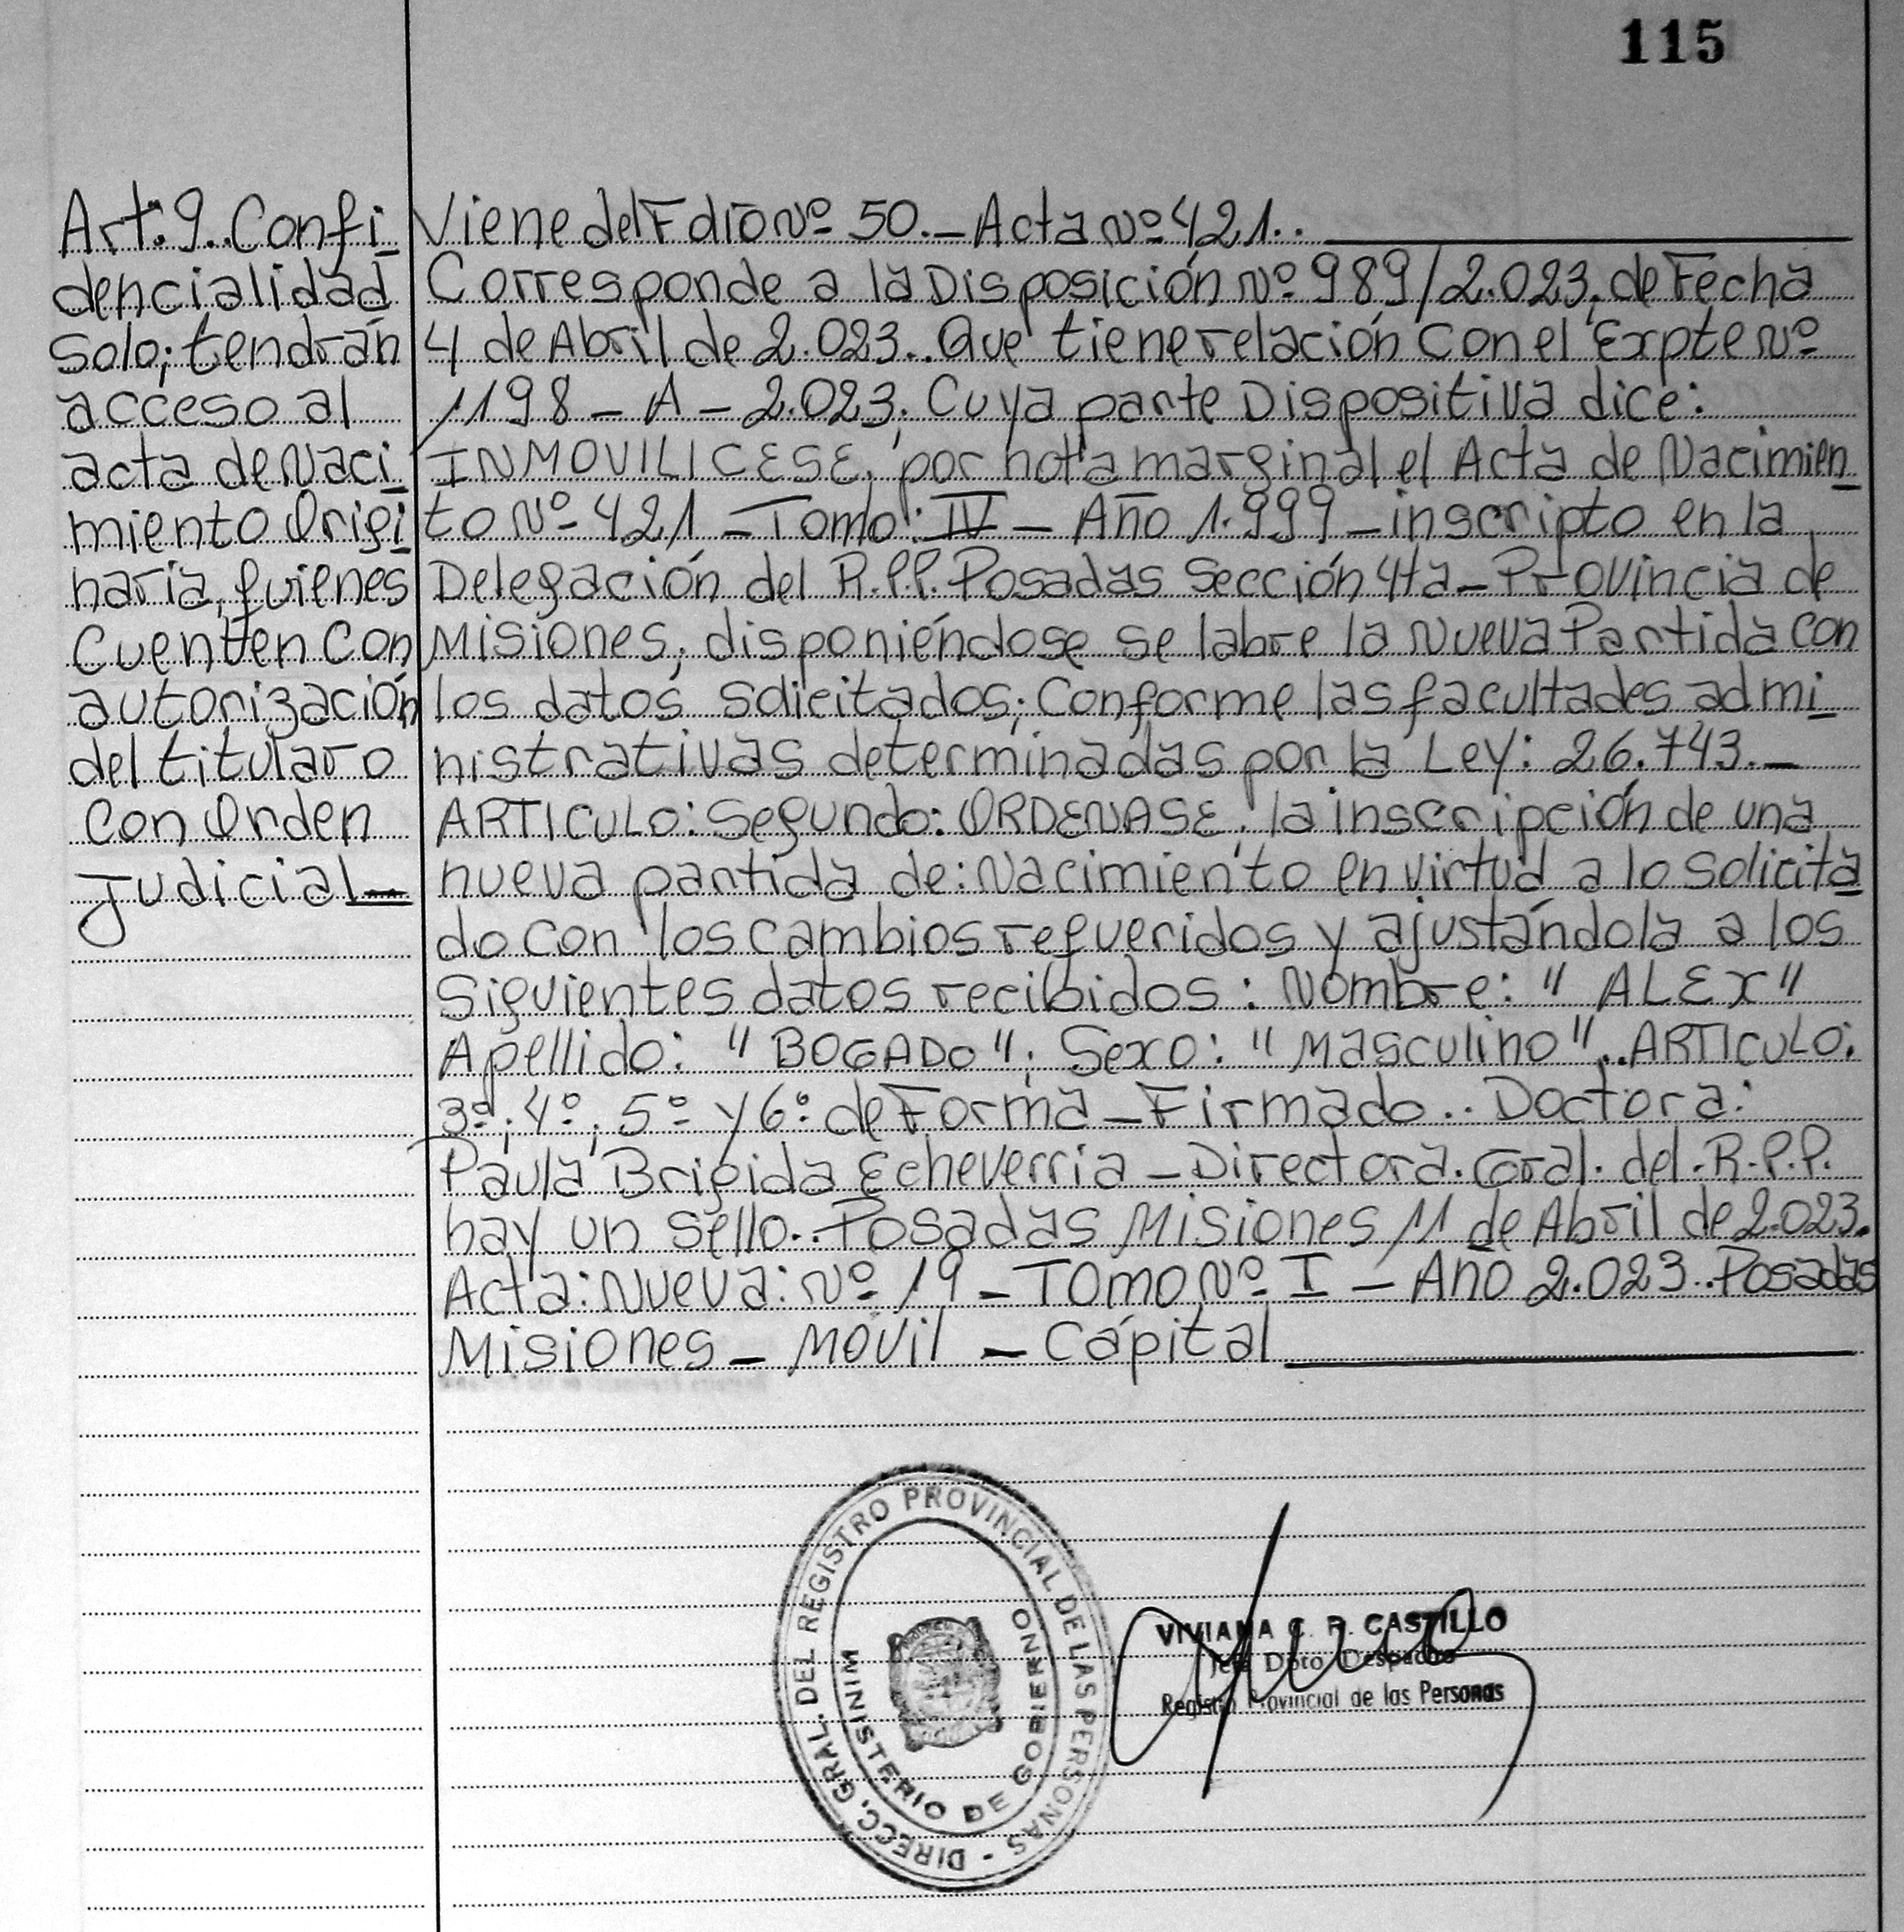 115
Art. 9.. Confi
dencialidad
Solo; tendrán
acceso al
acta de Naci
miento Origi
naria, quienes
Cuenten Con
autorización
del titular o
Con Orden
Judicial
Viene del Folio Nº 50.- Acta Nº 421..
Corresponde a la Disposición Nº 989/2.023, de Fecha
4 de Abril de 2.023.. Que tiene relación Con el Expte Nº
1198 - A - 2.023; Cuya parte Dispositiva dice:
INMOVILICESE, por nota marginal el Acta de Nacimien
to Nº 421 - Tomo: IV - Año 1.999 - inscripto en la
Delegación del R.P.P. Posadas Sección 4ta - Provincia de
Misiones, disponiéndose se labre la Nueva Partida con
los datos solicitados; Conforme las facultades admi
nistrativas determinadas por la Ley: 26.743.-
ARTICULO: Segundo: ORDENASE, la inscripción de una
nueva partida de: Nacimiento en virtud a lo solicita
do con los cambios requeridos y ajustándola a los
Siguientes datos recibidos: Nombre: "ALEX"
Apellido: "BOGADO"; Sexo: "Masculino".. ARTICULO:
3º; 4º; 5º y 6º: de Forma - Firmado.. Doctora:
Paula Brigida Echeverria - Directora. Gral. del. R.P.P.
hay un sello.. Posadas Misiones 11 de Abril de 2.023.
Acta: Nueva: Nº 19 - TOMO Nº I - Año 2.023.. Posadas
Misiones - Móvil - Cápital
DIRECC. GRAL. DEL REGISTRO PROVINCIAL DE LAS PERSONAS -
MINISTERIO DE GOBIERNO
VIVIANA C. R. CASTILLO
Jefe Dpto. Despacho
Registro Provincial de las Personas